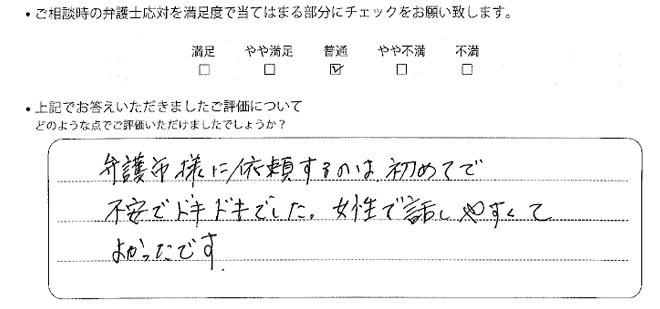 ・ご相談時の弁護士応対を満足度で当てはまる部分にチェックをお願い致します。
満足 やや満足 普通 やや不満 不満
□ □ ☑ □ □
・上記でお答えいただきましたご評価について
どのような点でご評価いただけましたでしょうか？
弁護士様に依頼するのは初めてで
不安でドキドキでした。女性で話しやすくて
よかったです.